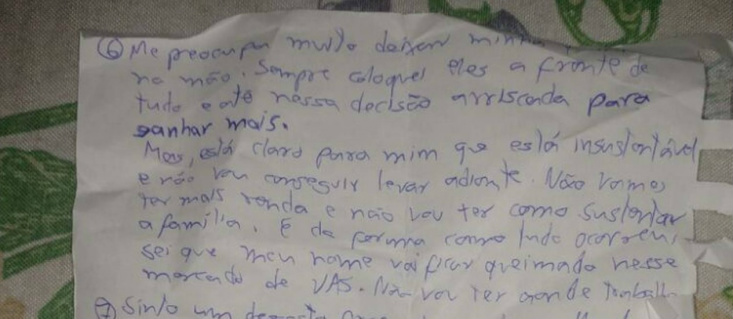 ⑥ Me preocupa muito deixar minha
na mão. Sempre coloquei eles a fronte de
tudo e até nessa decisão arriscada para
ganhar mais.
Mas, está claro para mim que está insustentável
e não vou conseguir levar adiante. Não vamos
ter mais renda e não vou ter como sustentar
a família. E da forma como tudo ocorreu,
sei que meu nome vai ficar queimado nesse
mercado de VAS. Não vou ter onde trabalh
⑦ Sinto um